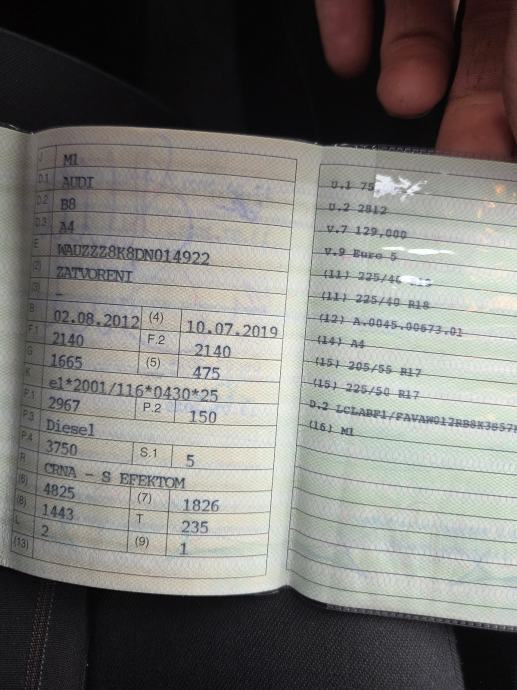 J M1
D.1 AUDI
D.2 B8
D.3 A4
E WAUZZZ8K8DN014922
(2) ZATVORENI
(3) –
B 02.08.2012 (4) 10.07.2019
F.1 2140 F.2 2140
G 1665 (5) 475
K e1*2001/116*0430*25
P.1 2967 P.2 150
P.3 Diesel
P.4 3750 S.1 5
R CRNA - S EFEKTOM
(6) 4825 (7) 1826
(8) 1443 T 235
L 2 (9) 1
(13)
U.1 75
U.2 2812
V.7 129,000
V.9 Euro 5
(11) 225/40
(11) 225/40 R18
(12) A.0045.00673.01
(14) A4
(15) 205/55 R17
(15) 225/50 R17
(16) M1